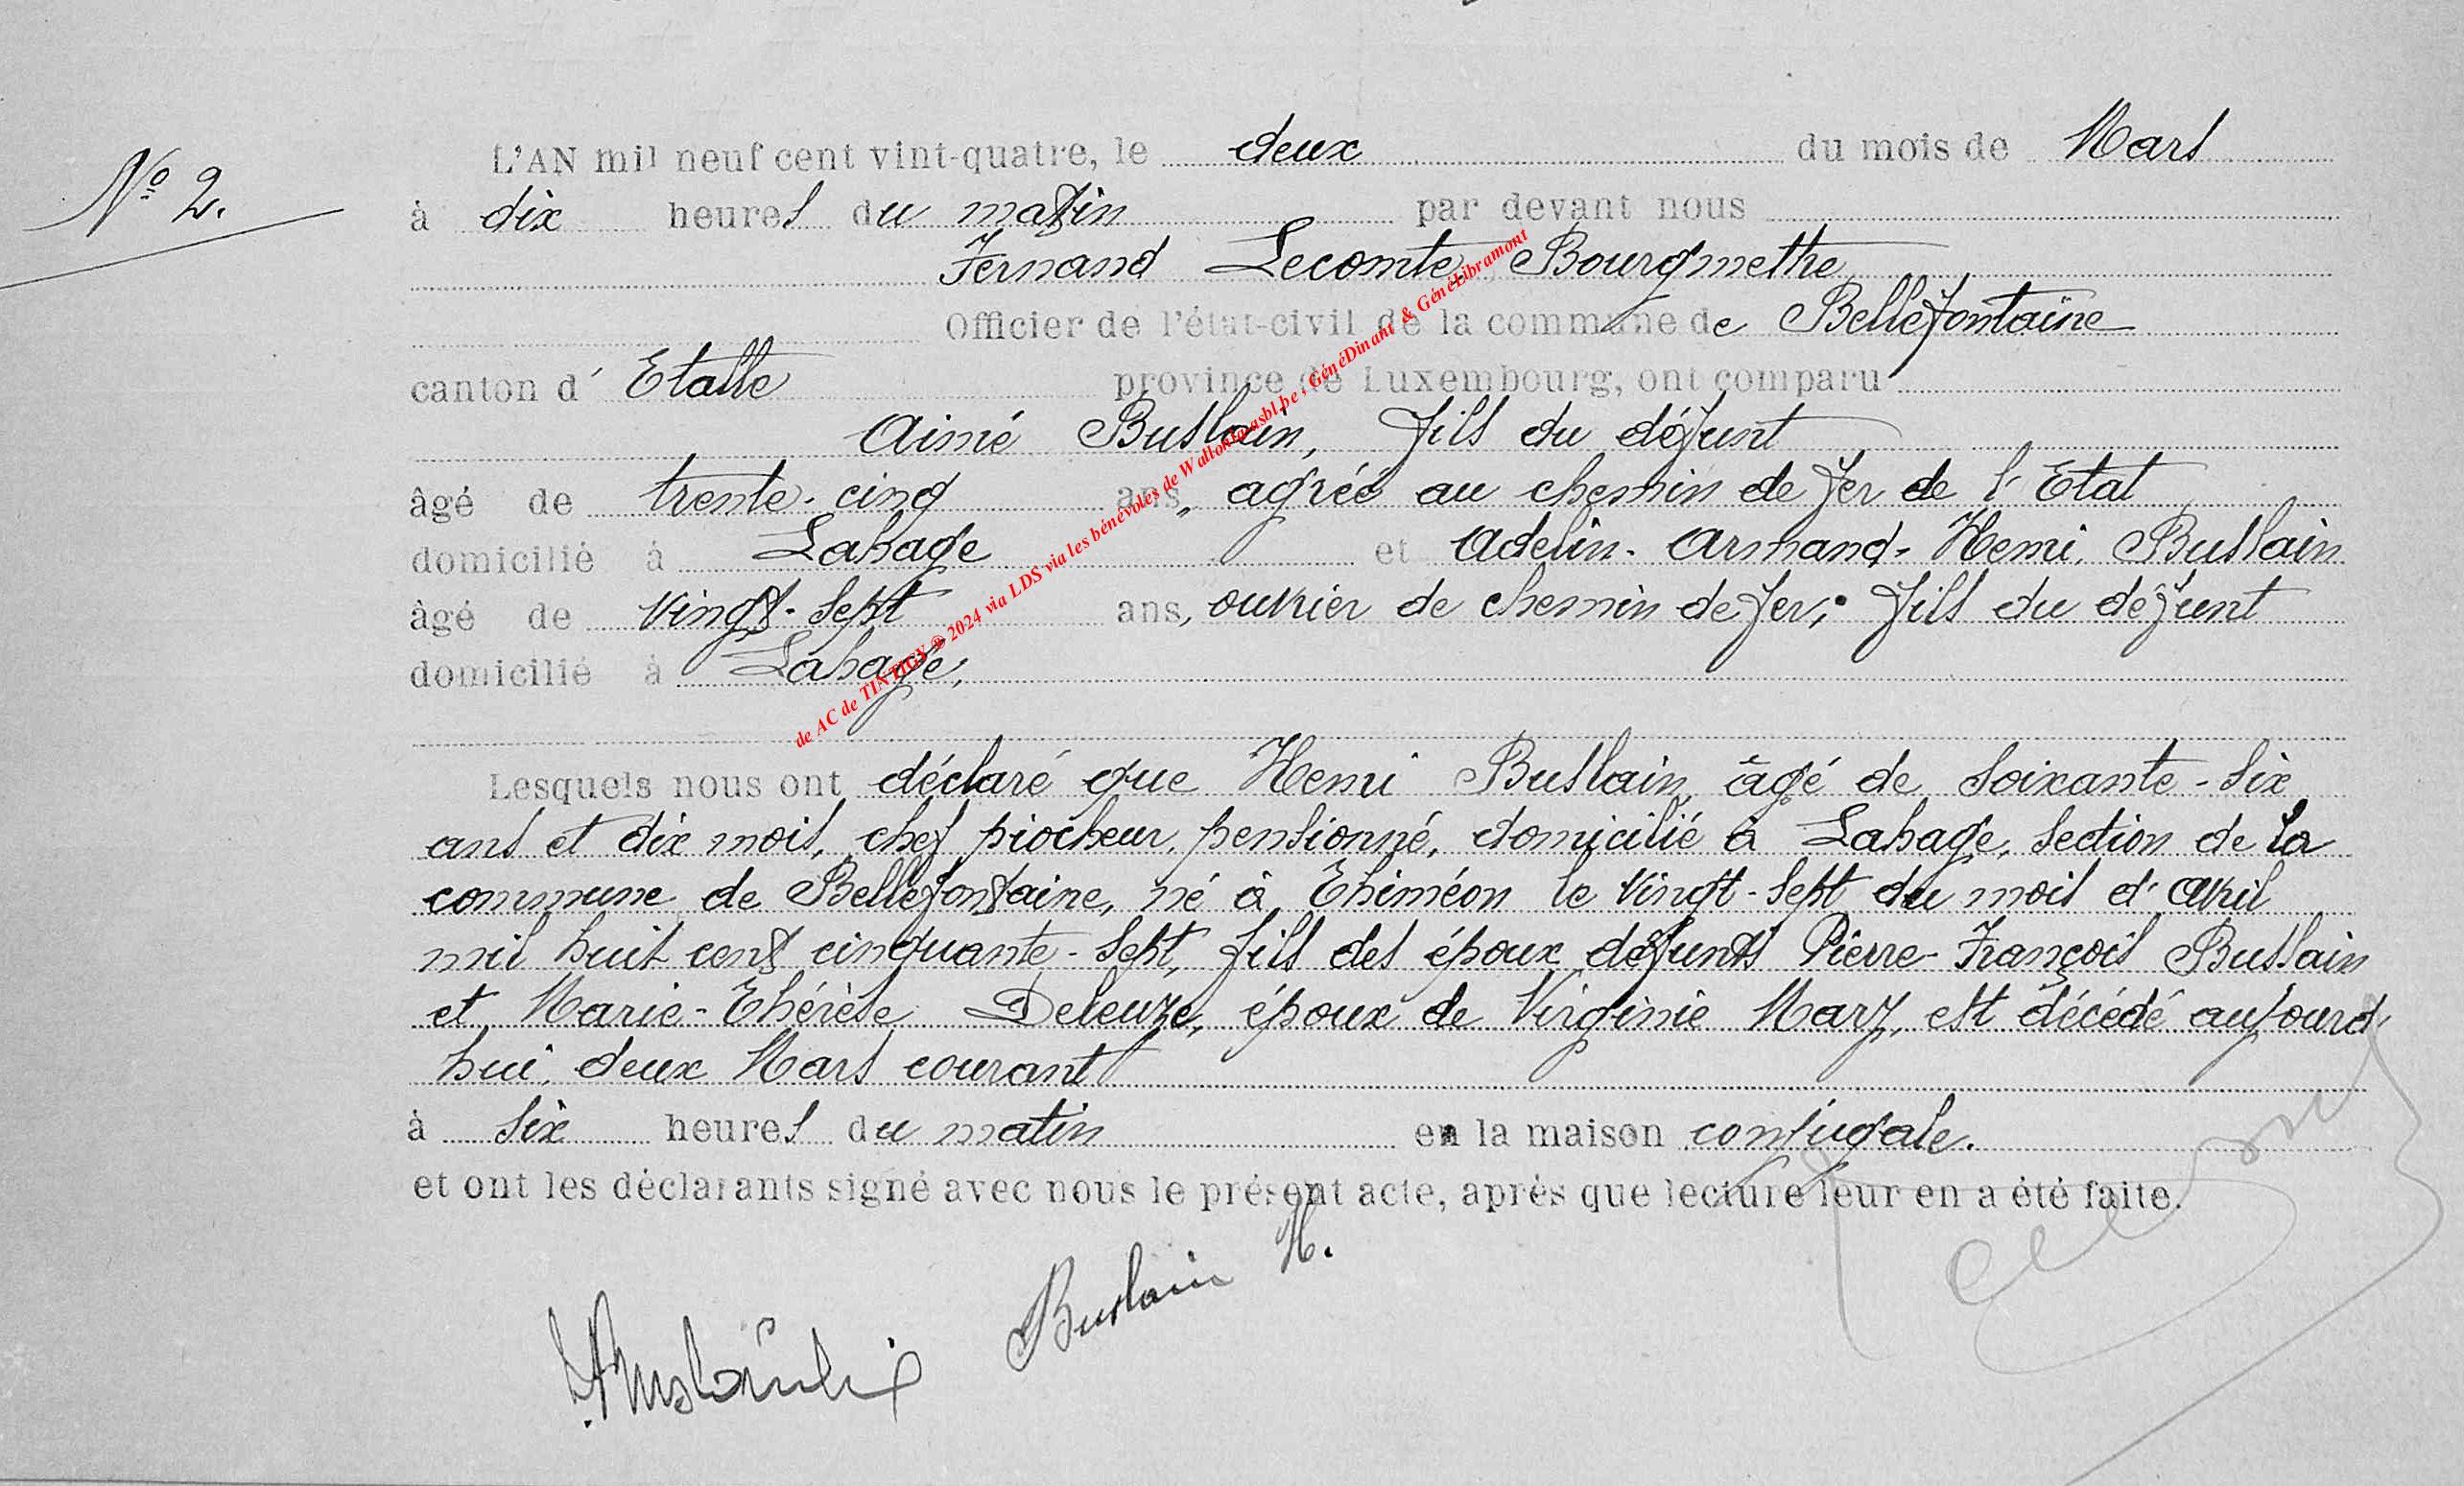 N° 2.
L'AN mil neuf cent vint-quatre, le deux du mois de Mars
à dix heures du matin par devant nous
Fernand Lecomte, Bourgmethre
Officier de l'état-civil de la commune de Bellefontaine
canton d' Etalle province de Luxembourg, ont comparu
Aimé Buslain, fils du défunt
âgé de trente-cinq ans, agréé au chemin de fer de l'Etat
domicilié à Lahage et Adelin-Armand-Henri Buslain
âgé de vingt-sept ans, ouvrier de chemin de fer, fils du défunt
domicilié à Lahage,
Lesquels nous ont déclaré que Henri Buslain, âgé de soixante-six
ans et dix mois, chef piocheur, pensionné, domicilié à Lahage, section de la
commune de Bellefontaine, né à Thiméon le vingt-sept du mois d'avril
mil huit cent cinquante-sept, fils des époux défunts Pierre-François Buslain
et Marie-Thérèse Deleuze, époux de Virginie Marz, est décédé aujourd'
hui, deux Mars courant
à six heures du matin en la maison conjugale.
et ont les déclarants signé avec nous le présent acte, après que lecture leur en a été faite.
Buslain H.
de AC de TINTIGY ® 2024 via LDS via les bénévoles de Wallonia-asbl.be ; GénéDinant & GénéLibramont